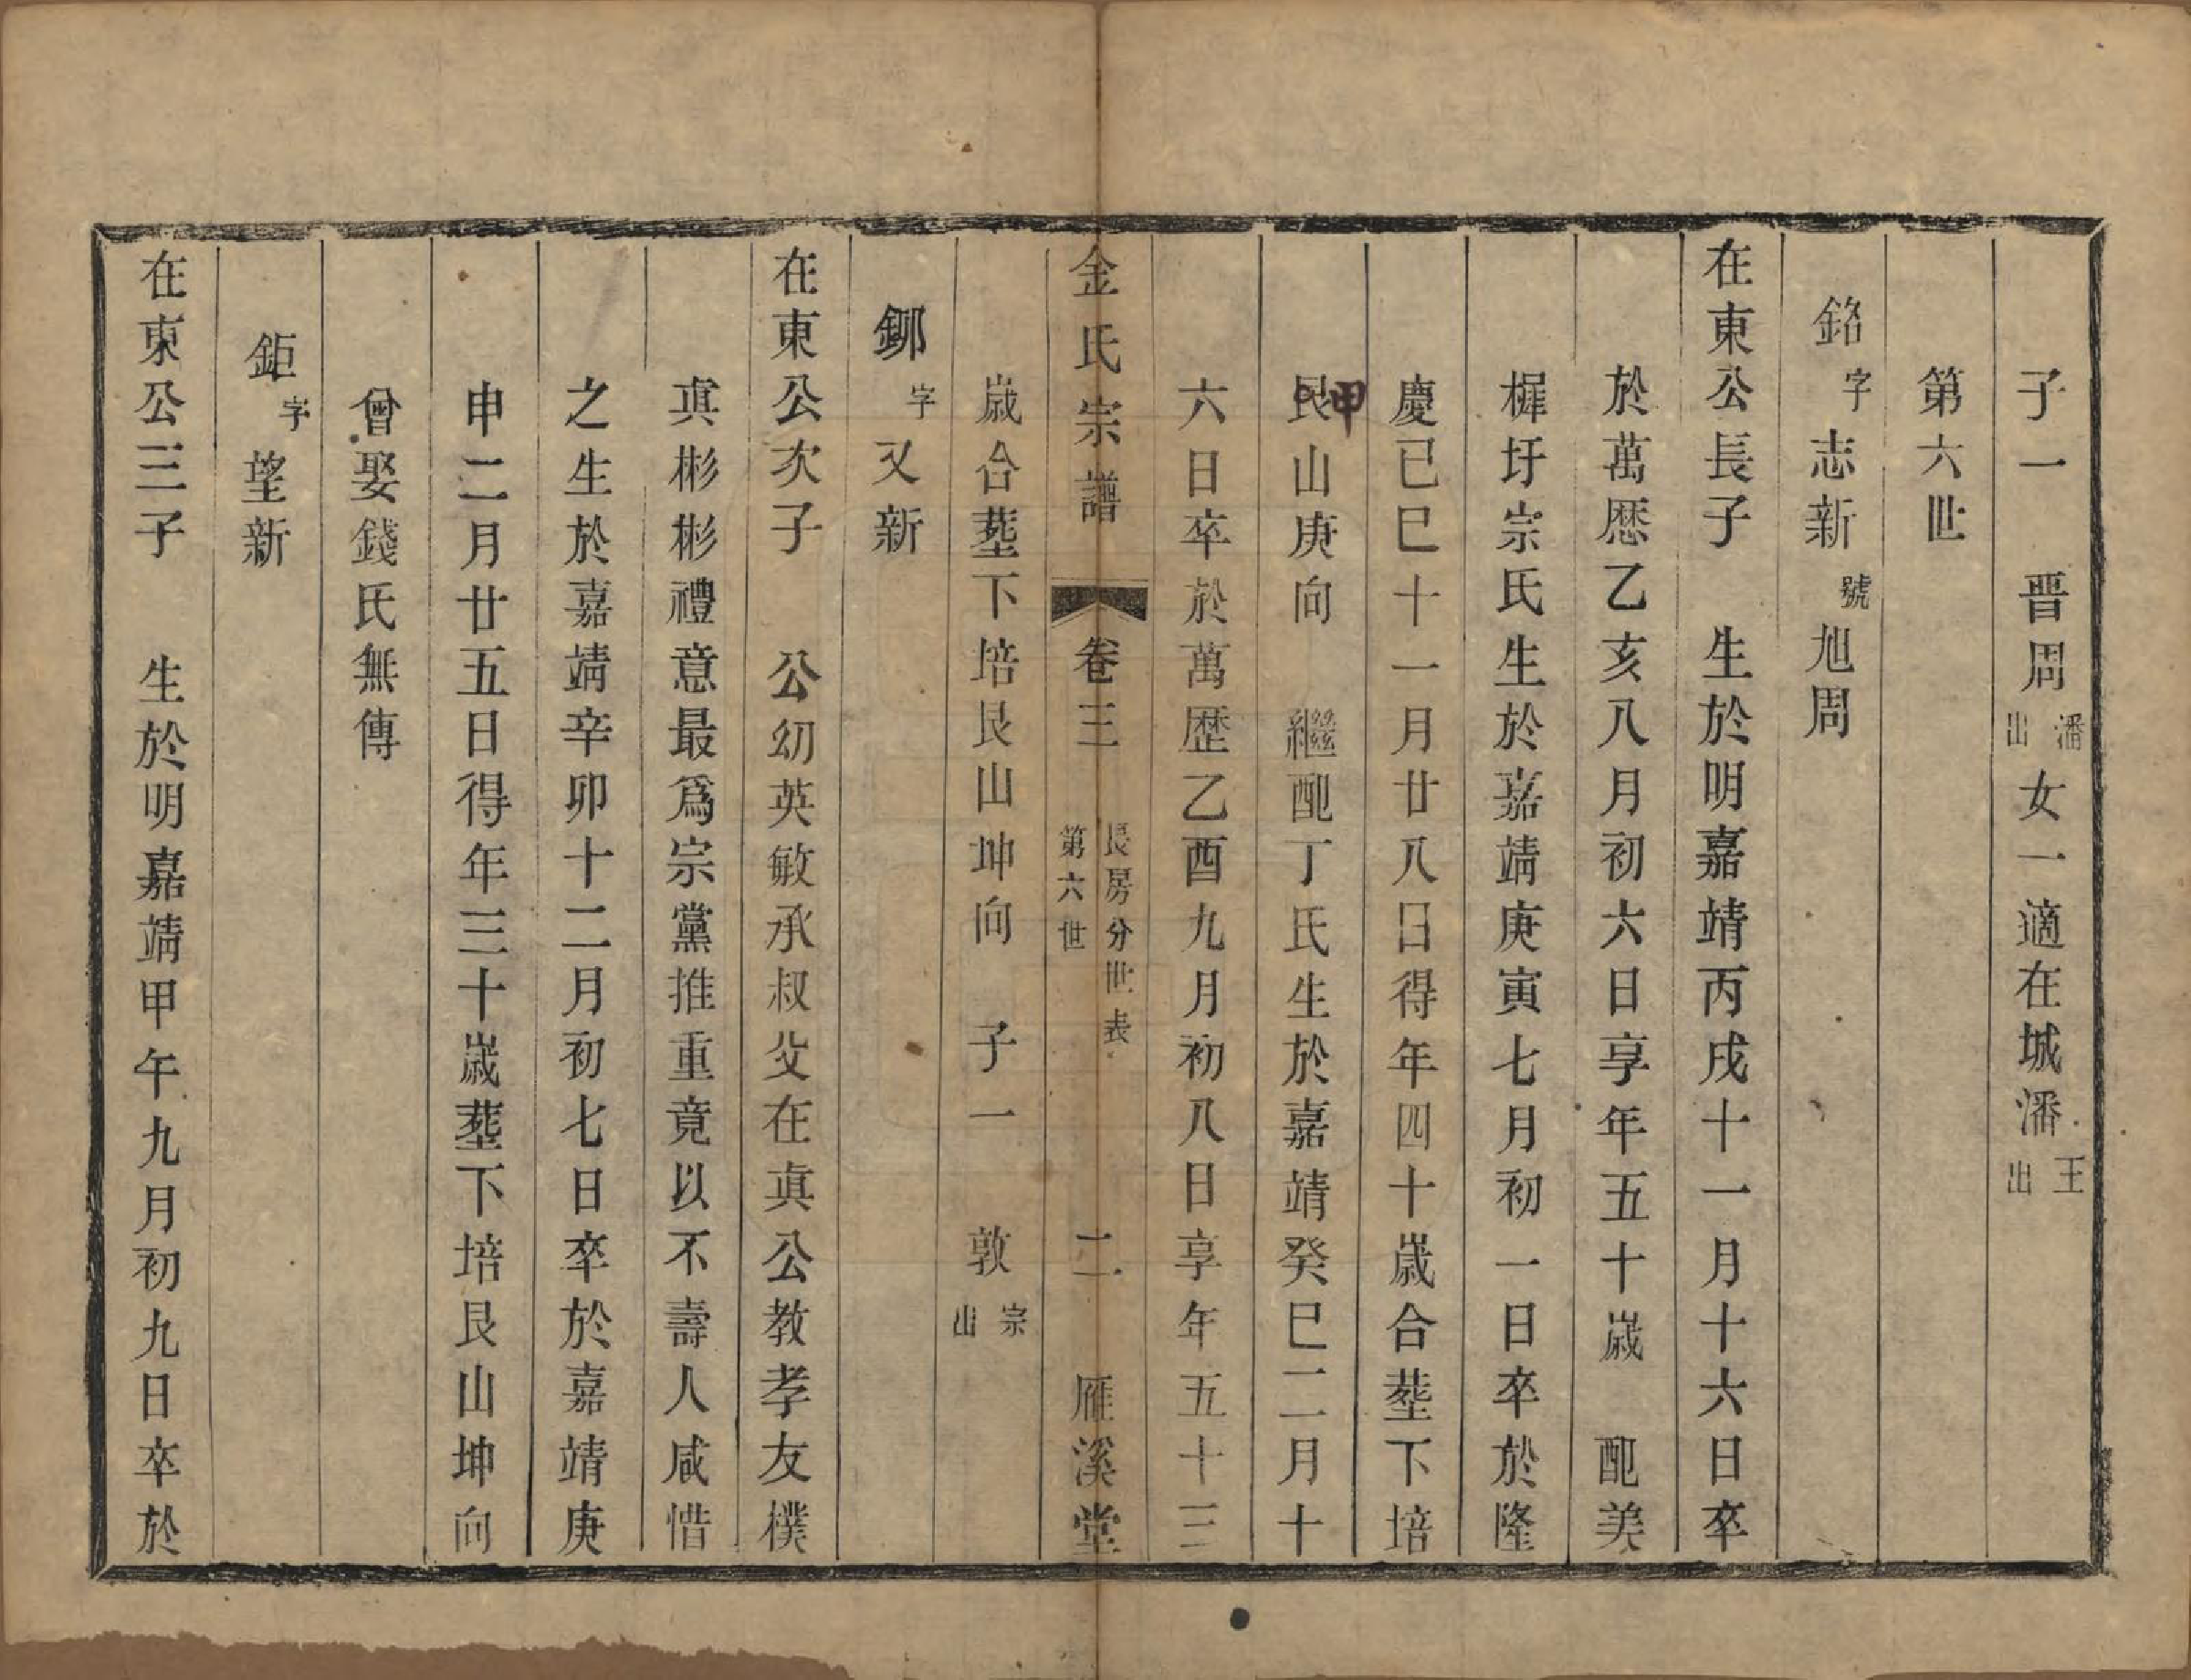 子一　晋周潘出女一適在城潘王出
第六世
銘字志新號旭周
在東公長子　生於明嘉靖丙戌十一月十六日卒
於萬厯乙亥八月初六日享年五十歲　配美
樨圩宗氏生於嘉靖庚寅七月初一日卒於隆
慶己巳十一月廿八日得年四十歲合塟下培
艮甲山庚向　繼配丁氏生於嘉靖癸巳二月十
六日卒於萬歴乙酉九月初八日享年五十三
金氏宗譜　卷三　長房分世表第六世　二　雁溪堂
歲合塟下培艮山坤向　子一　敦宗出
鉚字又新
在東公次子　公幼英敏承叔父在真公教孝友樸
真彬彬禮意最爲宗黨推重竟以不壽人咸惜
之生於嘉靖辛卯十二月初七日卒於嘉靖庚
申二月廿五日得年三十歲塟下培艮山坤向
曾娶錢氏無傳
鉅字望新
在東公三子　生於明嘉靖甲午九月初九日卒於